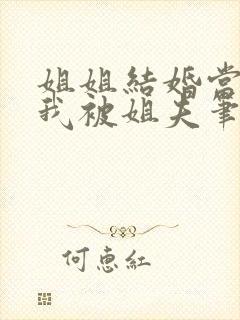 姐姐結婚當
我被姐夫筆
何惠紅